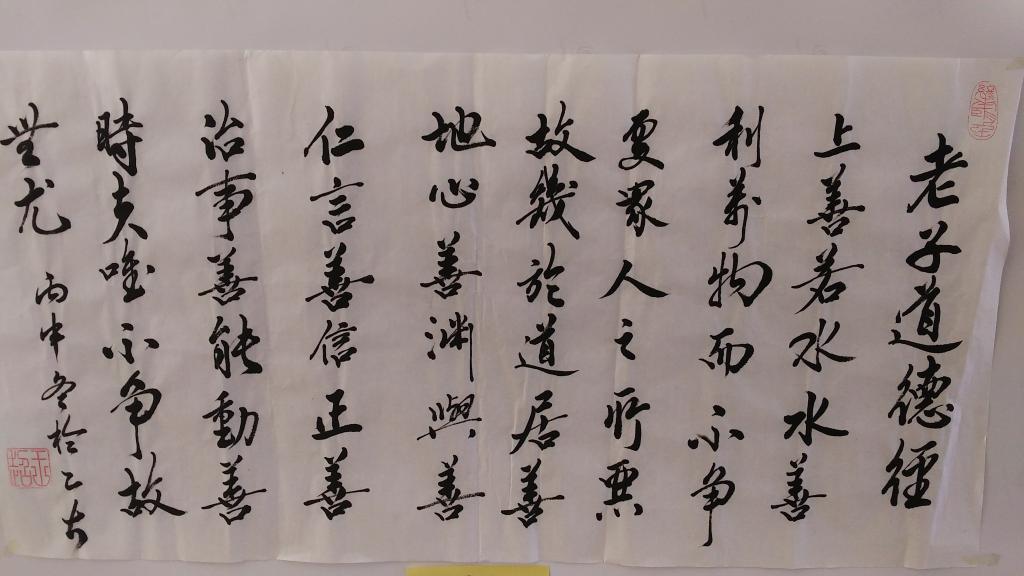 老子道德径
上善若水水善
利萬物而不争
處眾人之所惡
故幾於道居善
地心善渊與善
仁言善信正善
治事善能動善
時夫唯不争故
無尤
丙申冬於